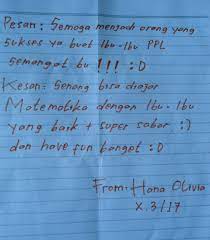 Pesan : Semoga menjadi orang yang
sukses ya buat Ibu-Ibu PPL
Semangat bu !!! :D
Kesan : Senang bisa diajar
Matematika dengan Ibu-Ibu
yang baik + super sabar :)
dan have fun banget :D
From : Hana Olivia
X.3/17